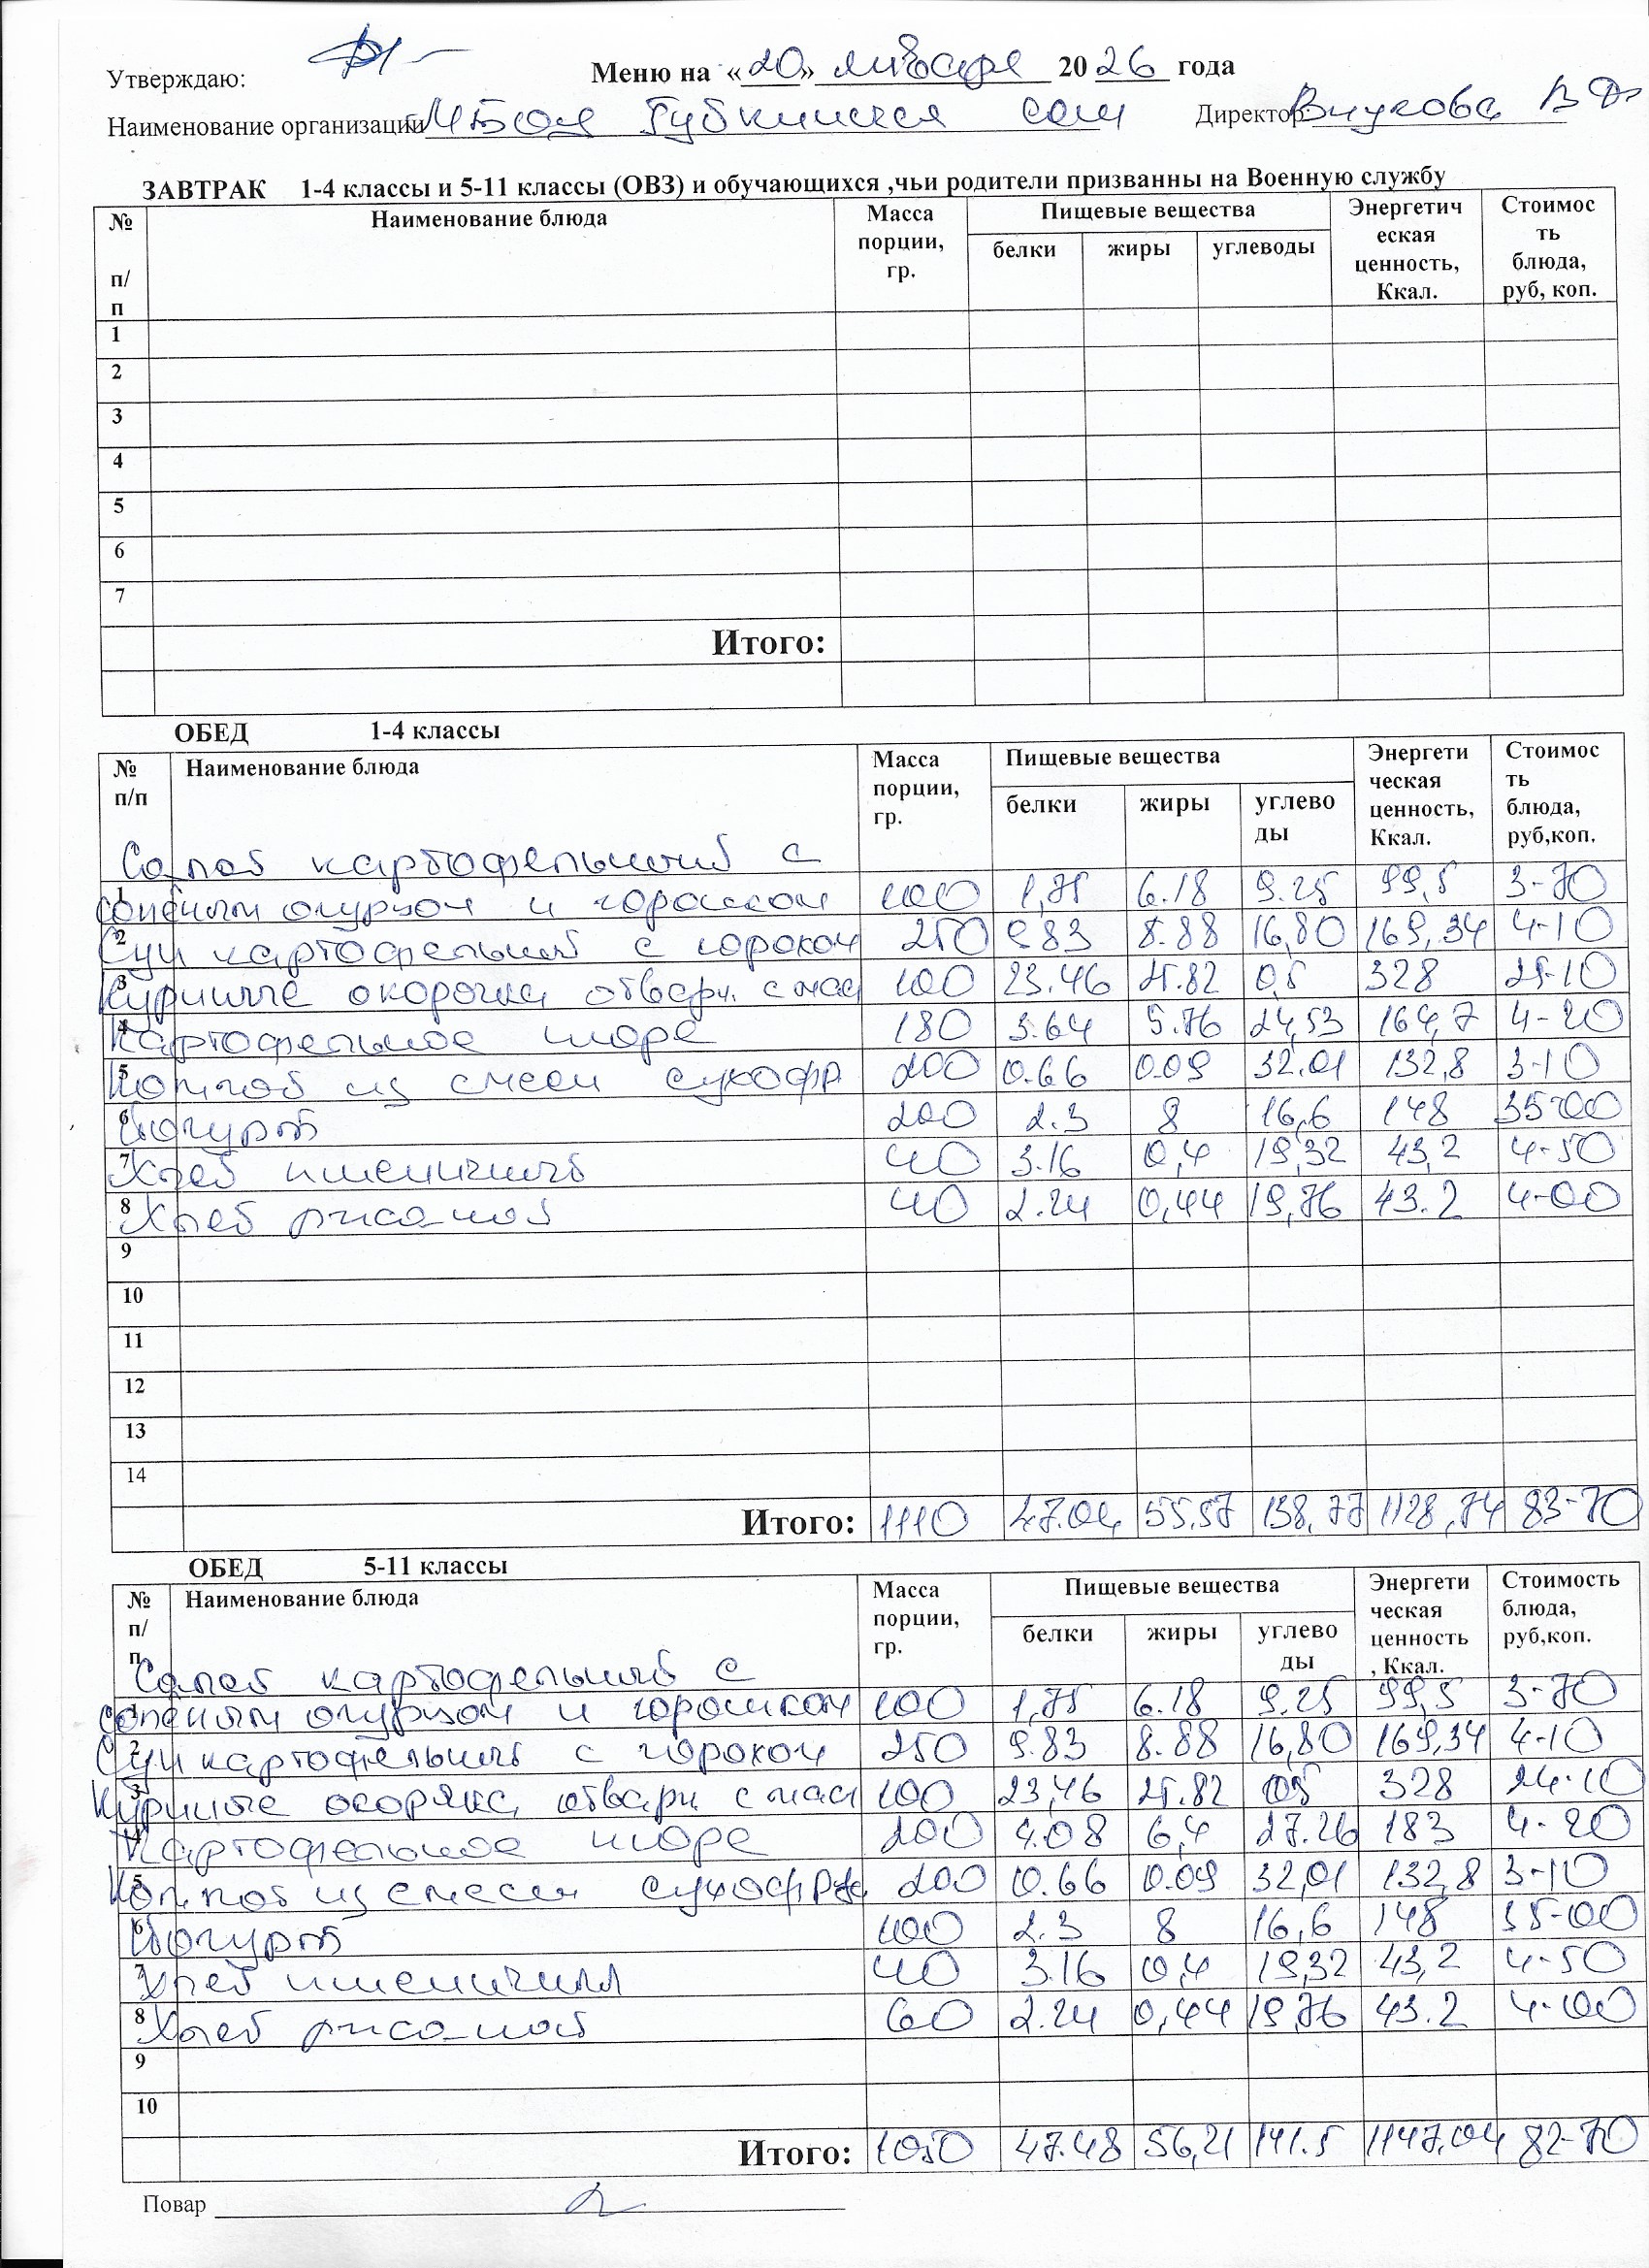 Утверждаю:
Меню на «20» января 2026 года
Наименование организации МБОУ Губкинская сош Директор: Внукова В
ЗАВТРАК 1-4 классы и 5-11 классы (ОВЗ) и обучающихся ,чьи родители призванны на Военную службу
№ п/п Наименование блюда Масса порции, гр. Пищевые вещества белки жиры углеводы Энергетическая ценность, Ккал. Стоимость блюда, руб, коп.
1
2
3
4
5
6
7
Итого:
ОБЕД 1-4 классы
№ п/п Наименование блюда Масса порции, гр. Пищевые вещества белки жиры углеводы Энергетическая ценность, Ккал. Стоимость блюда, руб,коп.
Салат картофельный с
1 соленым огурцом и горошком 100 1,75 6.18 9.25 99,5 3-70
2 Суп картофельный с горохом 250 9.83 8.88 16,80 169,34 4-10
3 Куриные окорочка отварн. с мас 100 23.46 25.82 0,5 328 25-10
4 Картофельное пюре 180 3.64 5.76 24,53 164,7 4-20
5 Компот из смеси сухофр 200 0.66 0.09 32.01 132,8 3-10
6 Йогурт 200 2.3 8 16,6 148 35-00
7 Хлеб пшеничный 40 3.16 0,4 19,32 43,2 4-50
8 Хлеб ржаной 40 2.24 0,44 19,76 43.2 4-00
9
10
11
12
13
14
Итого: 1110 47.04 55,57 138,77 1128,74 83-70
ОБЕД 5-11 классы
№ п/п Наименование блюда Масса порции, гр. Пищевые вещества белки жиры углеводы Энергетическая ценность, Ккал. Стоимость блюда, руб,коп.
Салат картофельный с
1 соленым огурцом и горошком 100 1,75 6.18 9.25 99,5 3-70
2 Суп картофельный с горохом 250 9.83 8.88 16,80 169,34 4-10
3 Куриные окорочка отварн с мас 100 23,46 25.82 0,5 328 24-10
4 Картофельное пюре 200 4.08 6,4 27.26 183 4-20
5 Компот из смеси сухофрук 200 0.66 0.09 32,01 132,8 3-10
6 Йогурт 100 2.3 8 16,6 148 35-00
7 Хлеб пшеничный 40 3.16 0,4 19,32 43,2 4-50
8 Хлеб ржаной 60 2.24 0,44 19,76 43.2 4-00
9
10
Итого: 1050 47.48 56,21 141.5 1147,04 82-70
Повар